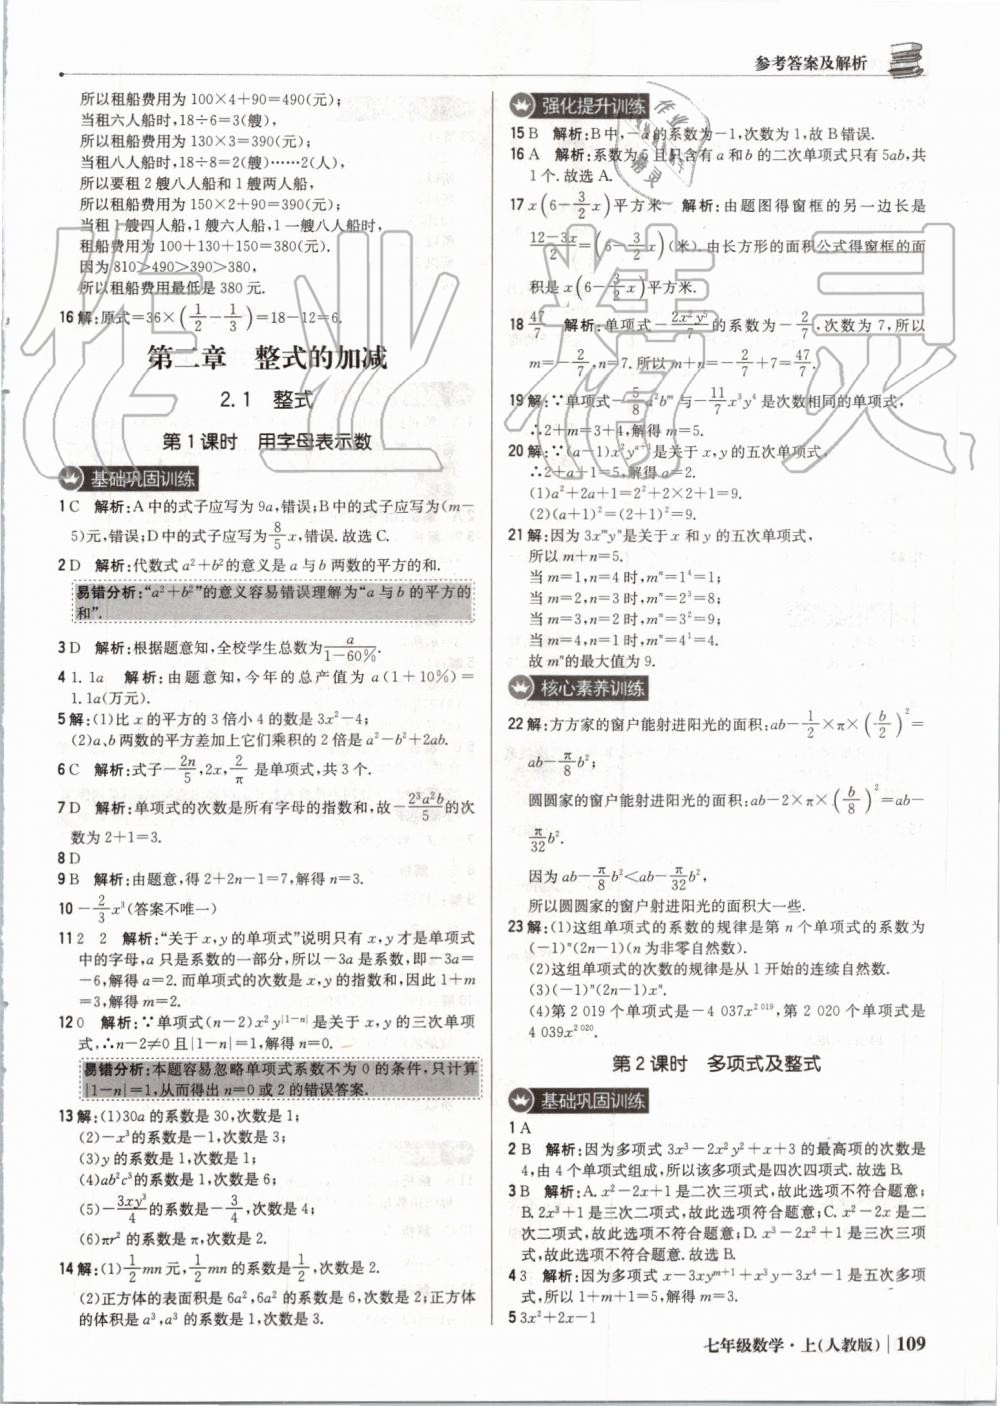 参考答案及解析
所以租船费用为100×4+90=490(元);
当租六人船时,18÷6=3(艘),
所以租船费用为130×3=390(元);
当租八人船时,18÷8=2(艘)……2(人),
所以要租2艘八人船和1艘两人船,
所以租船费用为150×2+90=390(元);
当租1艘四人船,1艘六人船,1艘八人船时,
租船费用为100+130+150=380(元);
因为810>490>390>380,
所以租船费用最低是380元.
16 解:原式=36×(1/2-1/3)=18-12=6.
第二章 整式的加减
2.1 整式
第1课时 用字母表示数
基础巩固训练
1 C 解析:A中的式子应写为9a,错误;B中的式子应写为(m-
5)元,错误;D中的式子应写为8/5x,错误.故选C.
2 D 解析:代数式a²+b²的意义是a与b两数的平方的和.
易错分析:“a²+b²”的意义容易错误理解为“a与b的平方的
和”.
3 D 解析:根据题意知,全校学生总数为a/(1-60%).
4 1.1a 解析:由题意知,今年的总产值为a(1+10%)=
1.1a(万元).
5 解:(1)比x的平方的3倍小4的数是3x²-4;
(2)a、b两数的平方差加上它们乘积的2倍是a²-b²+2ab.
6 C 解析:式子-2n/5,2x,2/π是单项式,共3个.
7 D 解析:单项式的次数是所有字母的指数和,故-2³a²b/5的次
数为2+1=3.
8 D
9 B 解析:由题意,得2+2n-1=7,解得n=3.
10 -2/3x³(答案不唯一)
11 2 2 解析:“关于x,y的单项式”说明只有x,y才是单项式
中的字母,a只是系数的一部分,所以-3a是系数,即-3a=
-6,解得a=2.而单项式的次数是x,y的指数和,因此1+m
=3,解得m=2.
12 0 解析:∵单项式(n-2)x²y^|1-n|是关于x,y的三次单项
式,∴n-2≠0且|1-n|=1,解得n=0.
易错分析:本题容易忽略单项式系数不为0的条件,只计算
|1-n|=1,从而得出n=0或2的错误答案.
13 解:(1)30a的系数是30,次数是1;
(2)-x³的系数是-1,次数是3;
(3)y的系数是1,次数是1;
(4)ab²c³的系数是1,次数是6;
(5)-3xy³/4的系数是-3/4,次数是4;
(6)πr²的系数是π,次数是2.
14 解:(1)1/2mn元,1/2mn的系数是1/2,次数是2.
(2)正方体的表面积是6a²,6a²的系数是6,次数是2;正方体
的体积是a³,a³的系数是1,次数是3.
强化提升训练
15 B 解析:B中,-a的系数为-1,次数为1,故B错误.
16 A 解析:系数为5且只含有a和b的二次单项式只有5ab,共
1个.故选A.
17 x(6-3/2x)平方米 解析:由题图得窗框的另一边长是
(12-3x)/2=(6-3/2x)(米).由长方形的面积公式得窗框的面
积是x(6-3/2x)平方米.
18 47/7 解析:单项式-2x²y⁵/7的系数为-2/7,次数为7,所以
m=-2/7,n=7.所以m+n=-2/7+7=47/7.
19 解:∵单项式-5/8a²bᵐ与-11/7x³y⁴是次数相同的单项式,
∴2+m=3+4,解得m=5.
20 解:∵(a-1)x²yᵃ⁺¹是关于x,y的五次单项式,
∴2+a+1=5,解得a=2.
(1)a²+2a+1=2²+2×2+1=9.
(2)(a+1)²=(2+1)²=9.
21 解:因为3xᵐyⁿ是关于x和y的五次单项式,
所以m+n=5.
当m=1,n=4时,mⁿ=1⁴=1;
当m=2,n=3时,mⁿ=2³=8;
当m=3,n=2时,mⁿ=3²=9;
当m=4,n=1时,mⁿ=4¹=4.
故mⁿ的最大值为9.
核心素养训练
22 解:方方家的窗户能射进阳光的面积:ab-1/2×π×(b/2)²=
ab-π/8b²;
圆圆家的窗户能射进阳光的面积:ab-2×π×(b/8)²=ab-
π/32b².
因为ab-π/8b²<ab-π/32b²,
所以圆圆家的窗户射进阳光的面积大一些.
23 解:(1)这组单项式的系数的规律是第n个单项式的系数为
(-1)ⁿ(2n-1)(n为非零自然数).
(2)这组单项式的次数的规律是从1开始的连续自然数.
(3)(-1)ⁿ(2n-1)xⁿ.
(4)第2 019个单项式是-4 037x²⁰¹⁹,第2 020个单项式是
4 039x²⁰²⁰.
第2课时 多项式及整式
基础巩固训练
1 A
2 B 解析:因为多项式3x³-2x²y²+x+3的最高项的次数是
4,由4个单项式组成,所以该多项式是四次四项式.故选B.
3 B 解析:A.x²-2x+1是二次三项式,故此选项不符合题意;
B.2x³+1是三次二项式,故此选项符合题意;C.x²-2x是二
次二项式,故此选项不符合题意;D.x³-2x²+1是三次三项
式,故此选项不符合题意.故选B.
4 3 解析:因为多项式x-3xyᵐ⁺¹+x³y-3x⁴-1是五次多项
式,所以1+m+1=5,解得m=3.
5 3x²+2x-1
七年级数学·上(人教版) 109
作业精灵